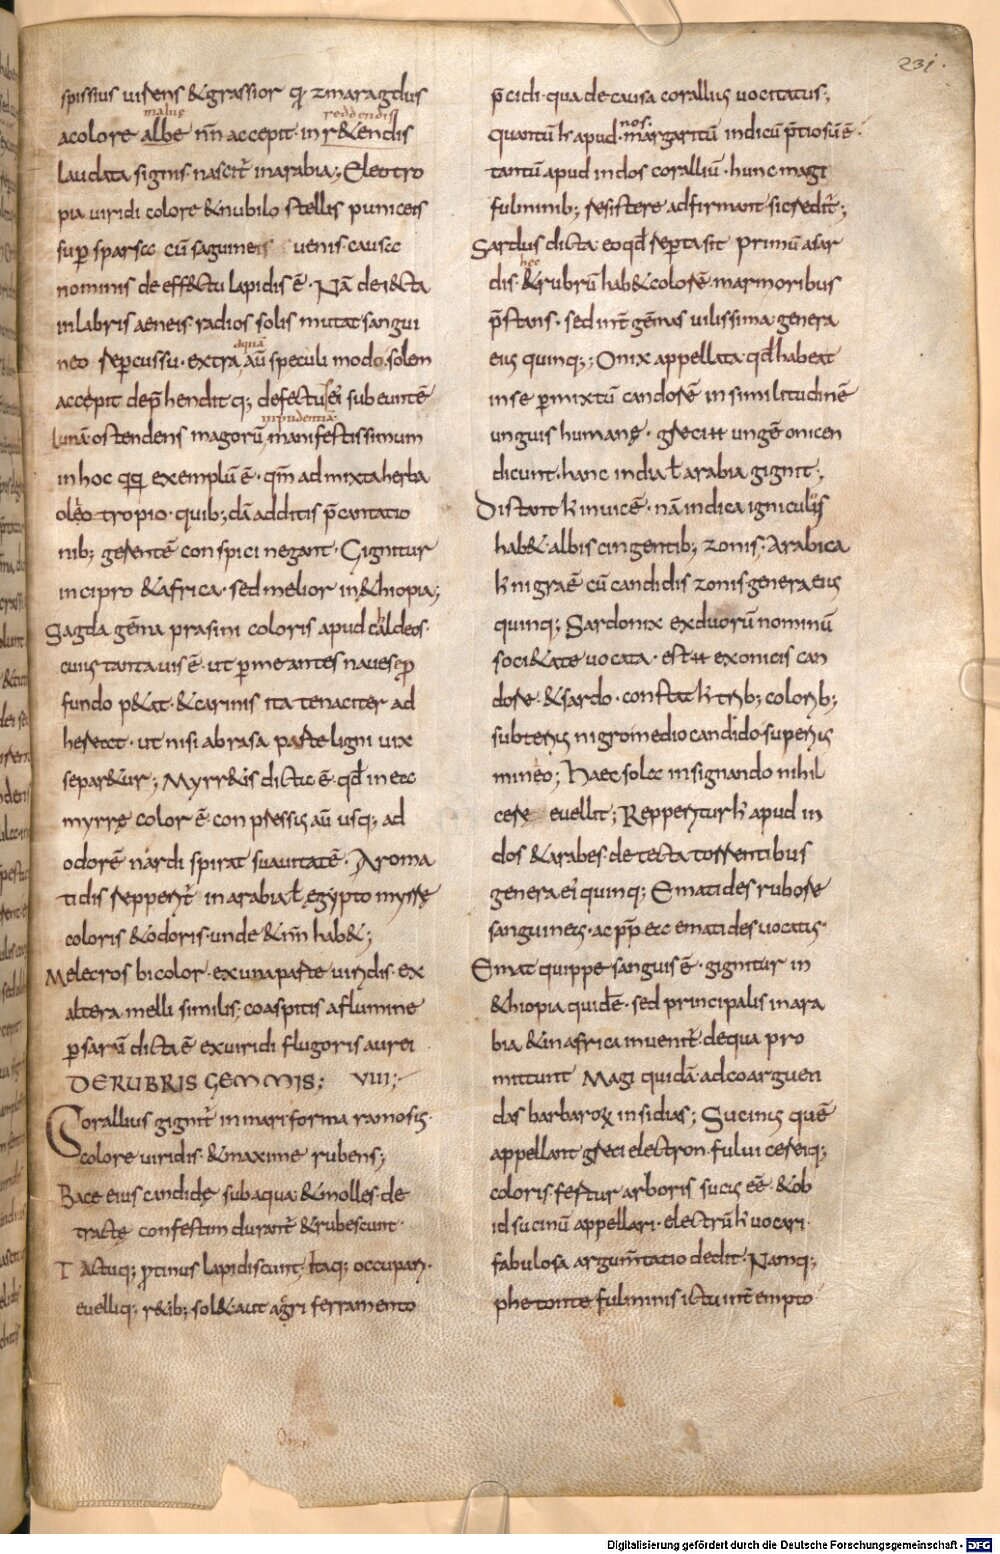 231.
spissius uirens &grassior q̄ zmaragdus
malus reddendis
acolore albe nm̄ accepit. in r&endis
laudata signis. nascit̄ inarabia; Eleotro
pia uiridi colore &nubilo stellis puniceis
sup sparsa cū sagumeis uenis. causa
nominis de eff&ctu lapidis ē. Nā dei&cta
inlabris aeneis radios solis mutat sangui
aquā
neo repcussu. extra aū speculi modo solem
accepit dep̄hendit q; defectus ei subeuntē
inpudentiā
lunā ostendens magorū manifestissimum
in hoc q̨q̨ exemplū ē. qm̄ ad mixta herba
oleotropio. quib; dā additis p̄cantatio
nib; gerentē conspici negant. Gignitur
incipro &africa. sed melior in&hiopia;
Sagda gēma prasini coloris apud caldeos.
cuius tanta uis ē. ut pmeantes naues e p̄
fundo p&at. &carinis ita tenaciter ad
hereat. ut nisi abrasa parte ligni uix
separ&ur; Myrr&is dicta ē. qđ in ea
myrrę color ē. con pressus aū usq; ad
odorē nardi spirat suauitatē. Aroma
tidis repperit̄ in arabia ł egypto myrrę
coloris &odoris. unde &nm̄ hab&;
Melecros bicolor. exuna parte uiridis. ex
altera melli similis; coaspitis a flumine
psarā dicta ē exuiridi flugoris aurei
DE RUBRIS GEMMIS; VIII;
Corallius gignit̄ in mari forma ramosis.
colore uiridis. &maxime rubens;
Bace eius candidę sub aqua &molles. de
tractę confestim durant̄ &rubescunt.
Tactuq; ptinus lapidiscunt, Itaq; occupari.
euelliq; r&ib; sol& aut agri ferramento
p̄cidi. qua de causa corallius uocitatus;
nos.
quantū ħ apud. margaritū indicū p̄tiosū ē.
tantū apud indos coralliū. hunc magi
fulminib; resistere adfirmant si credit̄;
Sardus dicta eo qđ reperta sit primū a sar
hec
dis. &rubrū hab& colorē. marmoribus
p̄stans. sed int̄ gēmas uilissima. genera
eius quinq;; Onix appellata. qđ habeat
inse pmixtū candorē in similitudinē
unguis humanę. greci ⁊ ungē onicen
dicunt. hanc india ł arabia gignit;
Distant ħ inuicē. nā indica igniculus
hab& albis cingentib; zonis. Arabica
ħ nigra ē cū candidis zonis genera eius
quinq; Sardonix exduorū nominū
soci&ate uocata. est ⁊ exonicis can
dore. &sardo. constat ħ trib; colorib;
subterius nigro medio candido. superius
mineo; Haec sola insignando nihil
cere euellit; Repperitur ħ apud in
dos &arabes. detecta torrentibus
genera ei quinq; Ematides rubore
sanguineus. ac pp̄ ea ematides uocatus.
Emat quippe sanguis ē. gignitur in
&hiopia quidē. sed principalis inara
bia &in africa inuenit̄. de qua pro
mittunt Magi quidā. adcoarguen
das barbaroꝝ insidias; Sucinus quē
appellant greci electron. fului cereiq;
coloris. fertur arboris sucus eē. &ob
id sucinū appellari. electrū ħ uocari.
fabulosa argum̄tatio dedit. Namq;
phetonte fulminis ictu int̄empto
Digitalisierung gefördert durch die Deutsche Forschungsgemeinschaft - DFG